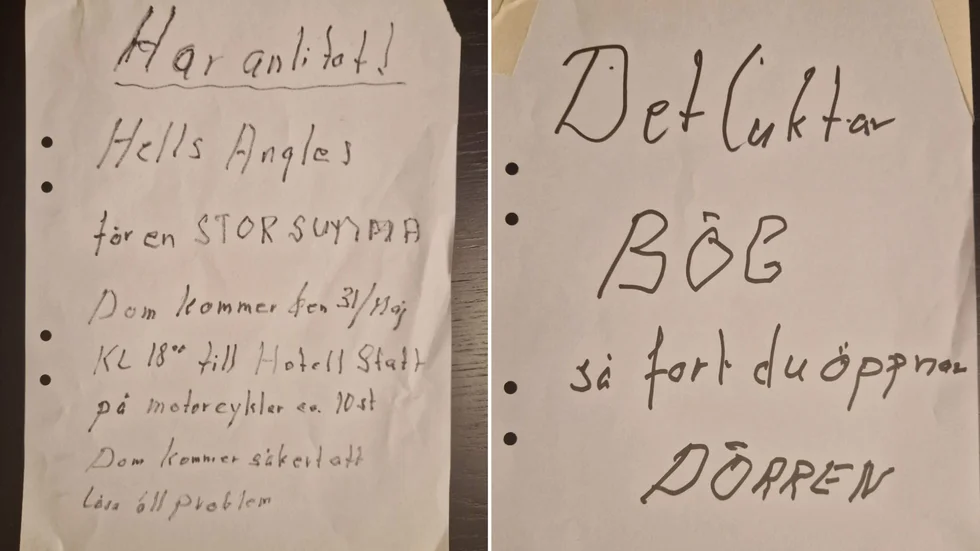 Har anlitat!
Hells Angles
för en STOR SUMMA
Dom kommer den 31/Maj
KL 18°° till Hotell Statt
på motorcyklar ca. 10st
Dom kommer säkert att
lösa ert problem
Det luktar
BÖG
så fort du öppnar
DÖRREN